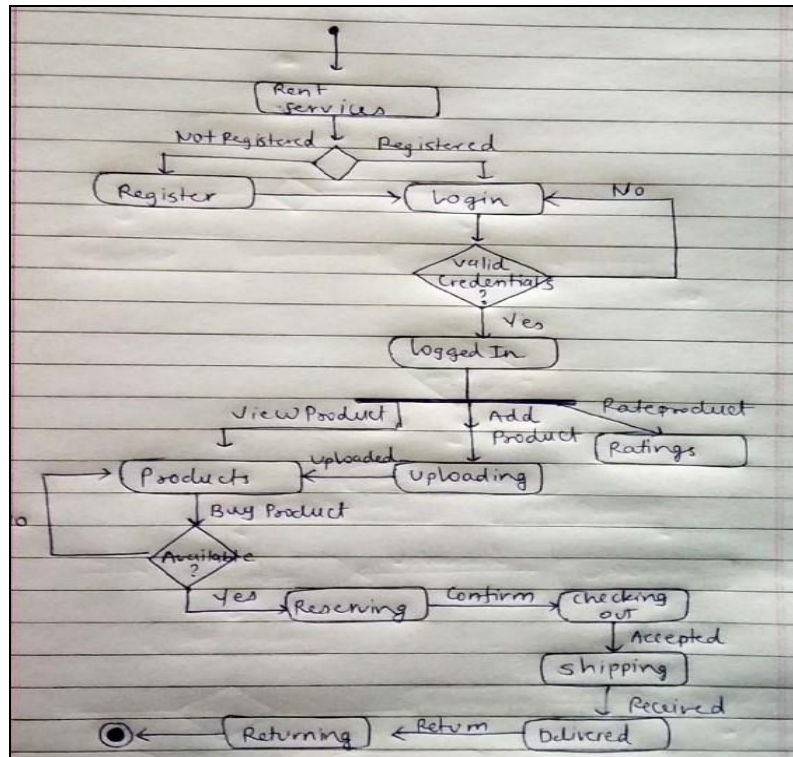 Rent
services
Not Registered
Registered
Register
Login
No
Valid
Credentials
?
Yes
Logged In
View Product
Add
Product
Rateproduct
Ratings
Products
Uploaded
Uploading
Buy Product
Available
?
Yes
Reserving
Confirm
Checking
out
Accepted
Shipping
Received
Delivered
Return
Returning